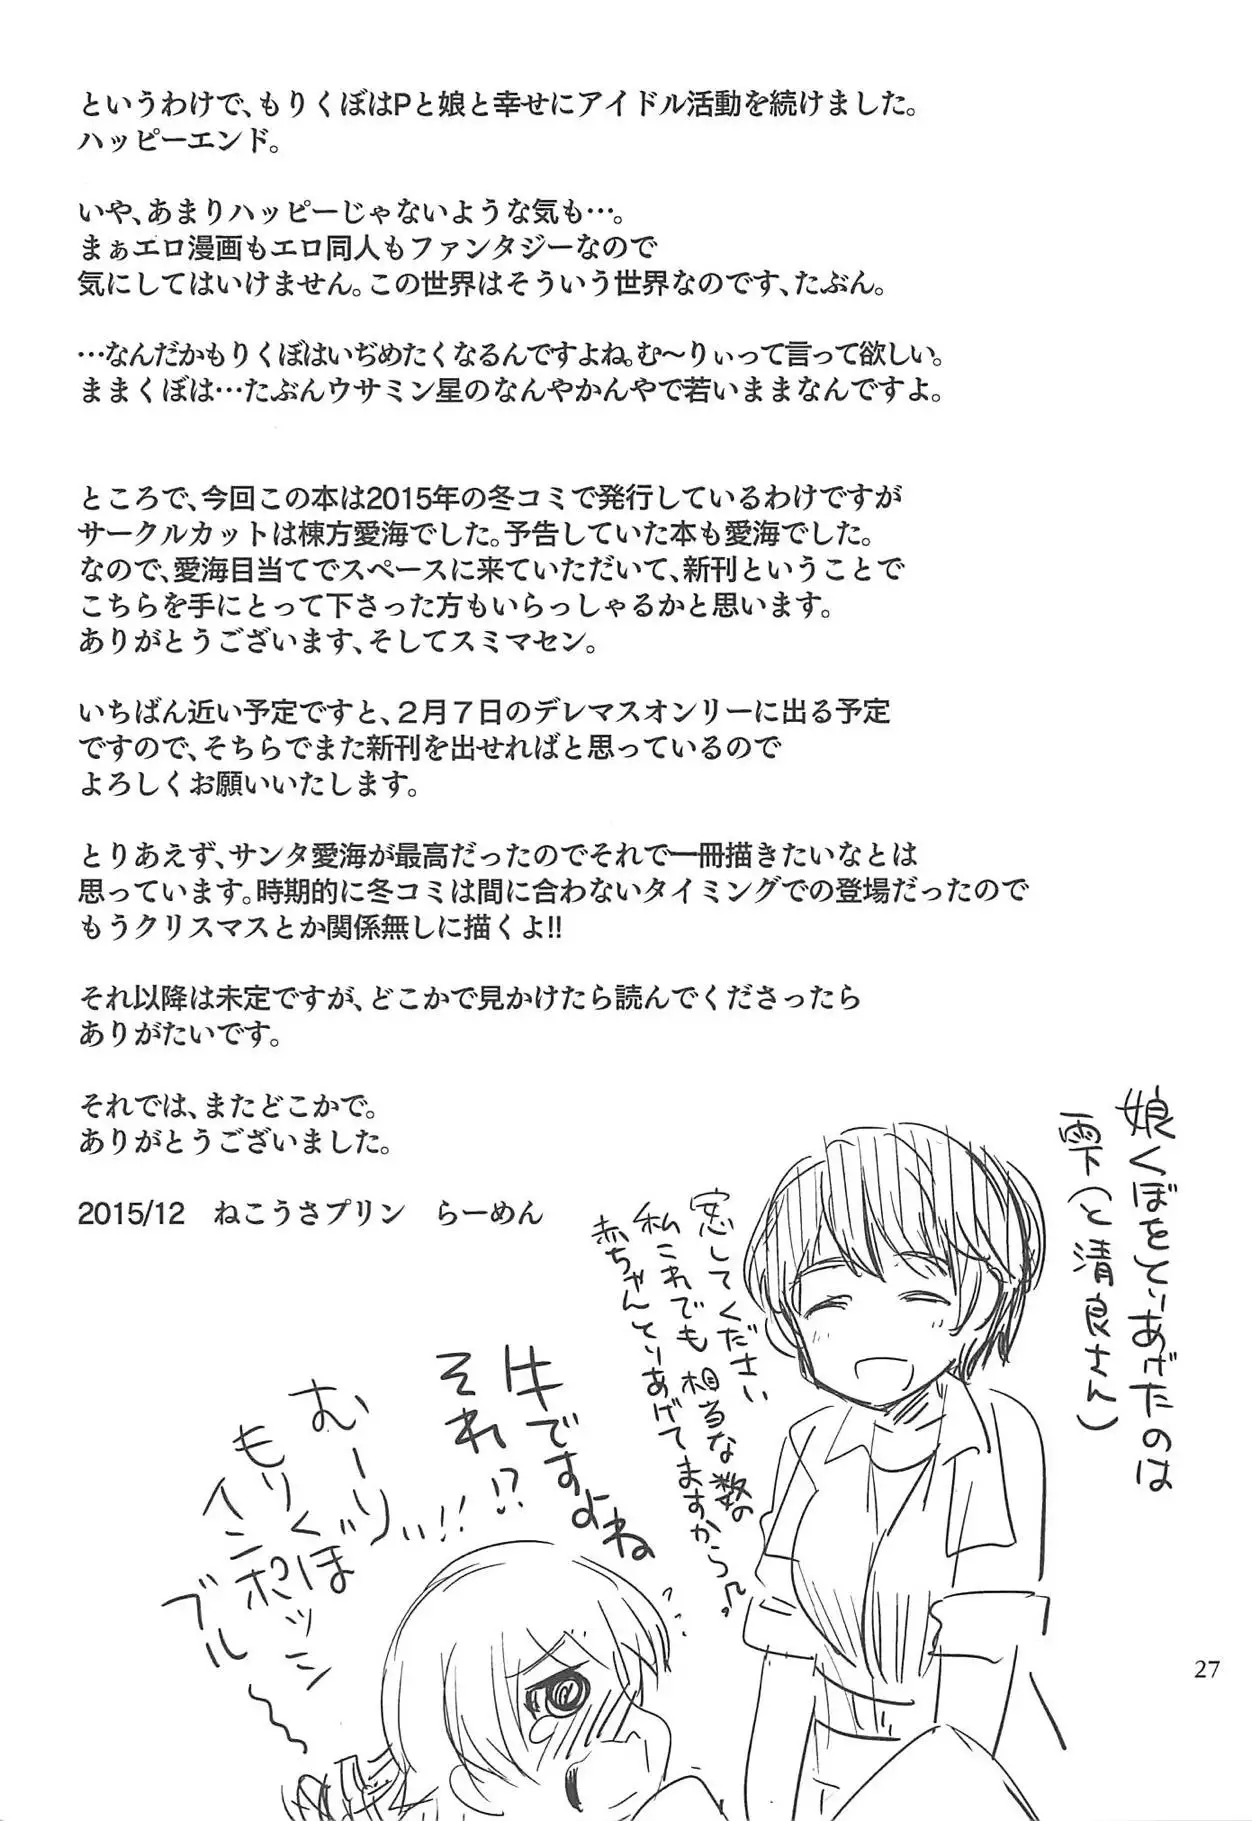 というわけで、もりくぼはPと娘と幸せにアイドル活動を続けました。
ハッピーエンド。
いや、あまりハッピーじゃないような気も…。
まぁエロ漫画もエロ同人もファンタジーなので
気にしてはいけません。この世界はそういう世界なのです、たぶん。
…なんだかもりくぼはいぢめたくなるんですよね。む〜りぃって言って欲しい。
ままくぼは…たぶんウサミン星のなんやかんやで若いままなんですよ。
ところで、今回この本は2015年の冬コミで発行しているわけですが
サークルカットは棟方愛海でした。予告していた本も愛海でした。
なので、愛海目当てでスペースに来ていただいて、新刊ということで
こちらを手にとって下さった方もいらっしゃるかと思います。
ありがとうございます、そしてスミマセン。
いちばん近い予定ですと、２月７日のデレマスオンリーに出る予定
ですので、そちらでまた新刊を出せればと思っているので
よろしくお願いいたします。
とりあえず、サンタ愛海が最高だったのでそれで一冊描きたいなとは
思っています。時期的に冬コミは間に合わないタイミングでの登場だったので
もうクリスマスとか関係無しに描くよ!!
それ以降は未定ですが、どこかで見かけたら読んでくださったら
ありがたいです。
それでは、またどこかで。
ありがとうございました。
2015/12　ねこうさプリン　らーめん
娘くぼをとりあげたのは
雫(と清良さん)
安心してください
私これでも相当な数の
赤ちゃんとりあげてますから♪
牛ですよね
それ!?
むーりぃ!!
もりくぼは
ヘニポッシ
ブル
27